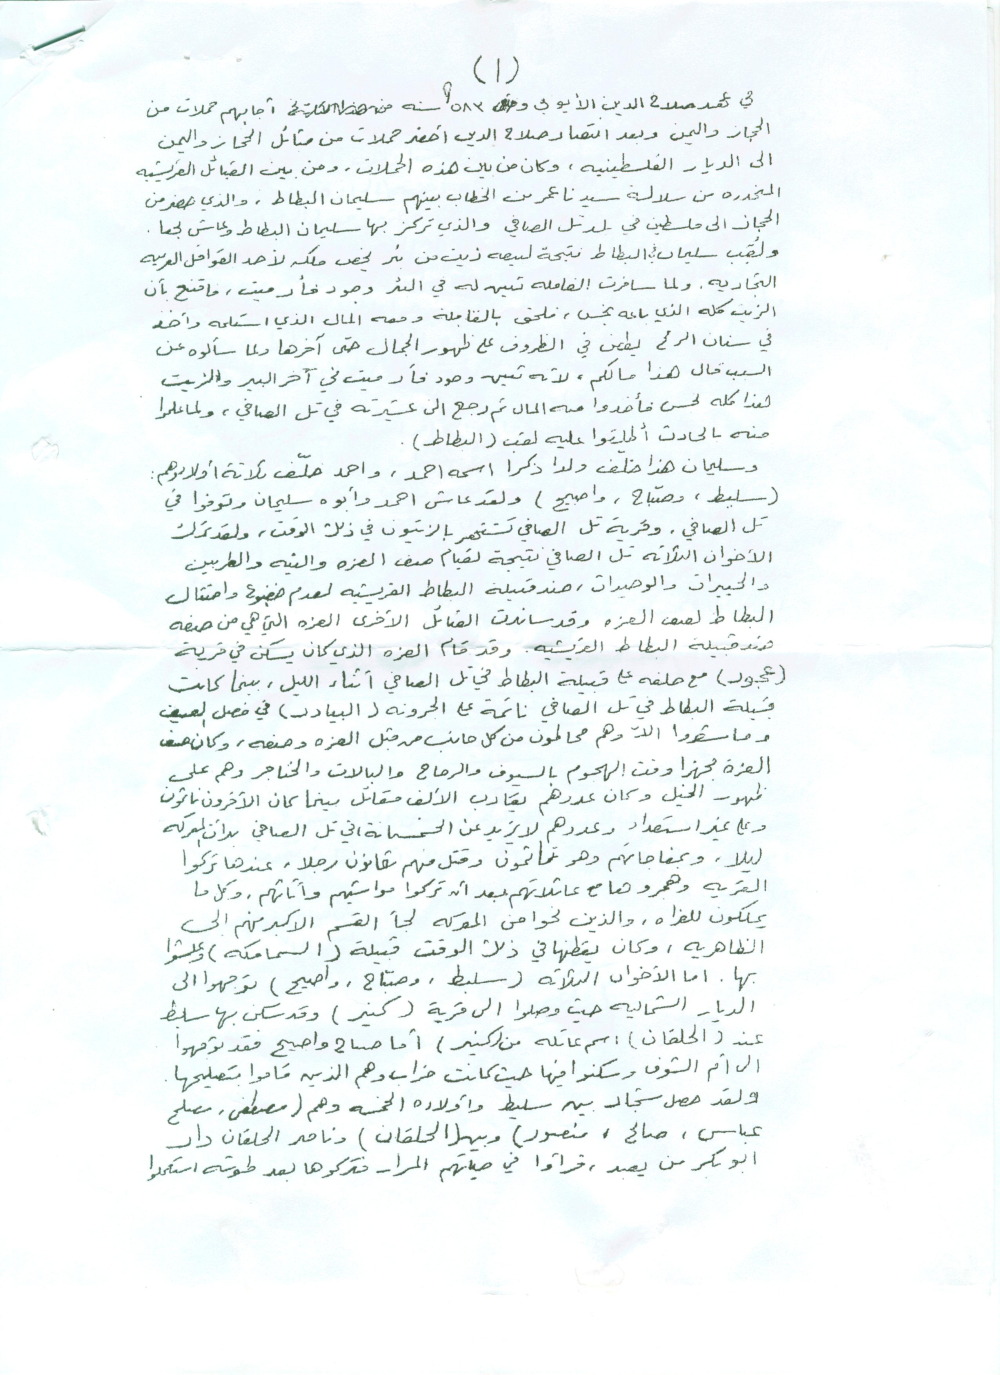 (١)
في عهد صلاح الدين الأيوبي و ٥٨٣ سنه أجابهم حملات من
الحجاز واليمن وبعد انتصار صلاح الدين أحضر حملات من قبائل الحجاز واليمن
الى الديار الفلسطينيه ، وكان من بين هذه الحملات ، ومن بين القبائل القريشيه
المنحدره من سلالة سيدنا عمر بن الخطاب بينهم سليمان البطاط ، والذي حضر من
الحجاز الى فلسطين في بلد تل الصافي والذي تركز بها سليمان البطاط وعاش بها .
ولُقب سليمان بالبطاط نتيجة لبيعه زيت من بئر يخص ملكه لأحد القوافل العربيه
التجاريه . ولما سافرت القافله تبين له في البئر وجود فأر ميت ، فاقتنع بأن
الزيت كله الذي باعه نجس ، فلحق بالقافلة ومعه المال الذي استلمه وأخذ
في سنان الرمح يطعن في الظروف على ظهور الجمال حتى آخرها ولما سألوه عن
السبب قال هذا مالكم ، لأنه تبين وجود فأر ميت في آخر البير والزيت
هذا كله نجس فأخذوا منه المال ثم رجع الى عشيرته في تل الصافي ، ولما علموا
منه بالحادث أطلقوا عليه لقب (البطاط) .
وسليمان هذا خلف ولدا ذكرا اسمه احمد ، واحمد خلّف ثلاثة أولاد وهم :
(سليط ، وصبّاح ، واصبيح) ولقد عاش احمد وأبوه سليمان وتوفوا في
تل الصافي ، وقرية تل الصافي تشتهر بالزيتون في ذلك الوقت ، ولقد ترك
الأخوان الثلاثه تل الصافي نتيجة لقيام صف العزه والقيه والطربيين
والجبيرات والوحيدات ، ضد قبيلة البطاط القريشيه لعدم خضوع وامتثال
البطاط لصف العزه وقد ساندت القبائل الأخرى العزه التي هي من صفه
ضد قبيلة البطاط القريشيه . وقد قام العزه الذي كان يسكن في قرية
(عجور) مع حلفه على قبيلة البطاط في تل الصافي أثناء الليل ، بينما كانت
قبيلة البطاط في تل الصافي نائمة على الجرونه (البيادر) في فصل الصيف
وما شعروا الا وهم محاطون من كل جانب من قبل العزه وصفه ، وكان صف
العزة مجهزا وقت الهجوم بالسيوف والرماح والبالات والخناجر وهم على
ظهور الخيل وكان عددهم يقارب الألف مقاتل بينما كان الآخرون نائمون
وعلى غير استعداد وعددهم لا يزيد عن الخمسمائة في تل الصافي بدأت المعركه
ليلا ، وبمفاجأتهم وهو نائمون وقتل منهم ثمانون رجلا ، عندها تركوا
القريه وهجروها مع عائلاتهم بعد أن تركوا مواشيهم وأثاثهم ، وكل ما
يملكون للغزاه ، والذين نجوا من المعركه لجأ القسم الاكبر منهم الى
الظاهريه ، وكان يقطنها في ذلك الوقت قبيلة (السمامكه) وعاشوا
بها . اما الأخوان الثلاثه (سليط ، وصبّاح ، واصبيح) توجهوا الى
الديار الشماليه حيث وصلوا الى قرية (كنير) وقد سكن بها سليط
عند (الحلقان) اسم عائله من (كنير) أما صباح واصبيح فقد توجهوا
الى أم الشوف وسكنوا فيها حيث كانت خراب وهم الذين قاموا بتصليحها .
ولقد حصل شجار بين سليط وأولاده الخمسه وهم (مصطفى ، مصلح
عباس ، صالح ، منصور) وبين (الحلقان) وناصر الحلقان دار
ابو بكر من يعبد ، فرأوا في حياتهم المرار فتركوها بعد طوشه استكملوا